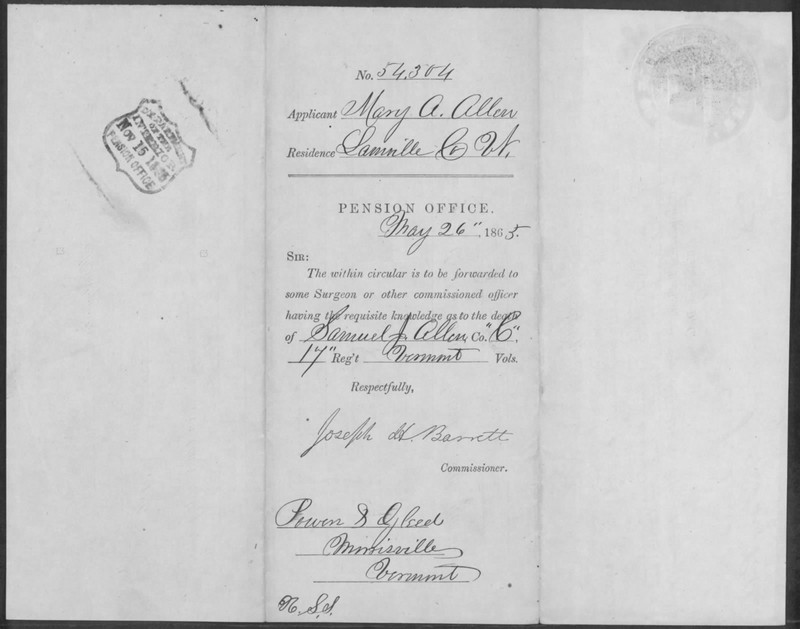 No. 54,304
Applicant Mary A. Allen
Residence Lamville Co Vt.
PENSION OFFICE.
May 26", 1865.
SIR:
The within circular is to be forwarded to
some Surgeon or other commissioned officer
having the requisite knowledge as to the death
of Samuel J. Allen, Co. "C".
17" Reg't Vermont Vols.
Respectfully,
Joseph H. Barrett
Commissioner.
Powers & Gleed
Morrisville
Vermont
DEPARTMENT
OF THE
INTERIOR
Nov 15 186
PENSION OFFICE